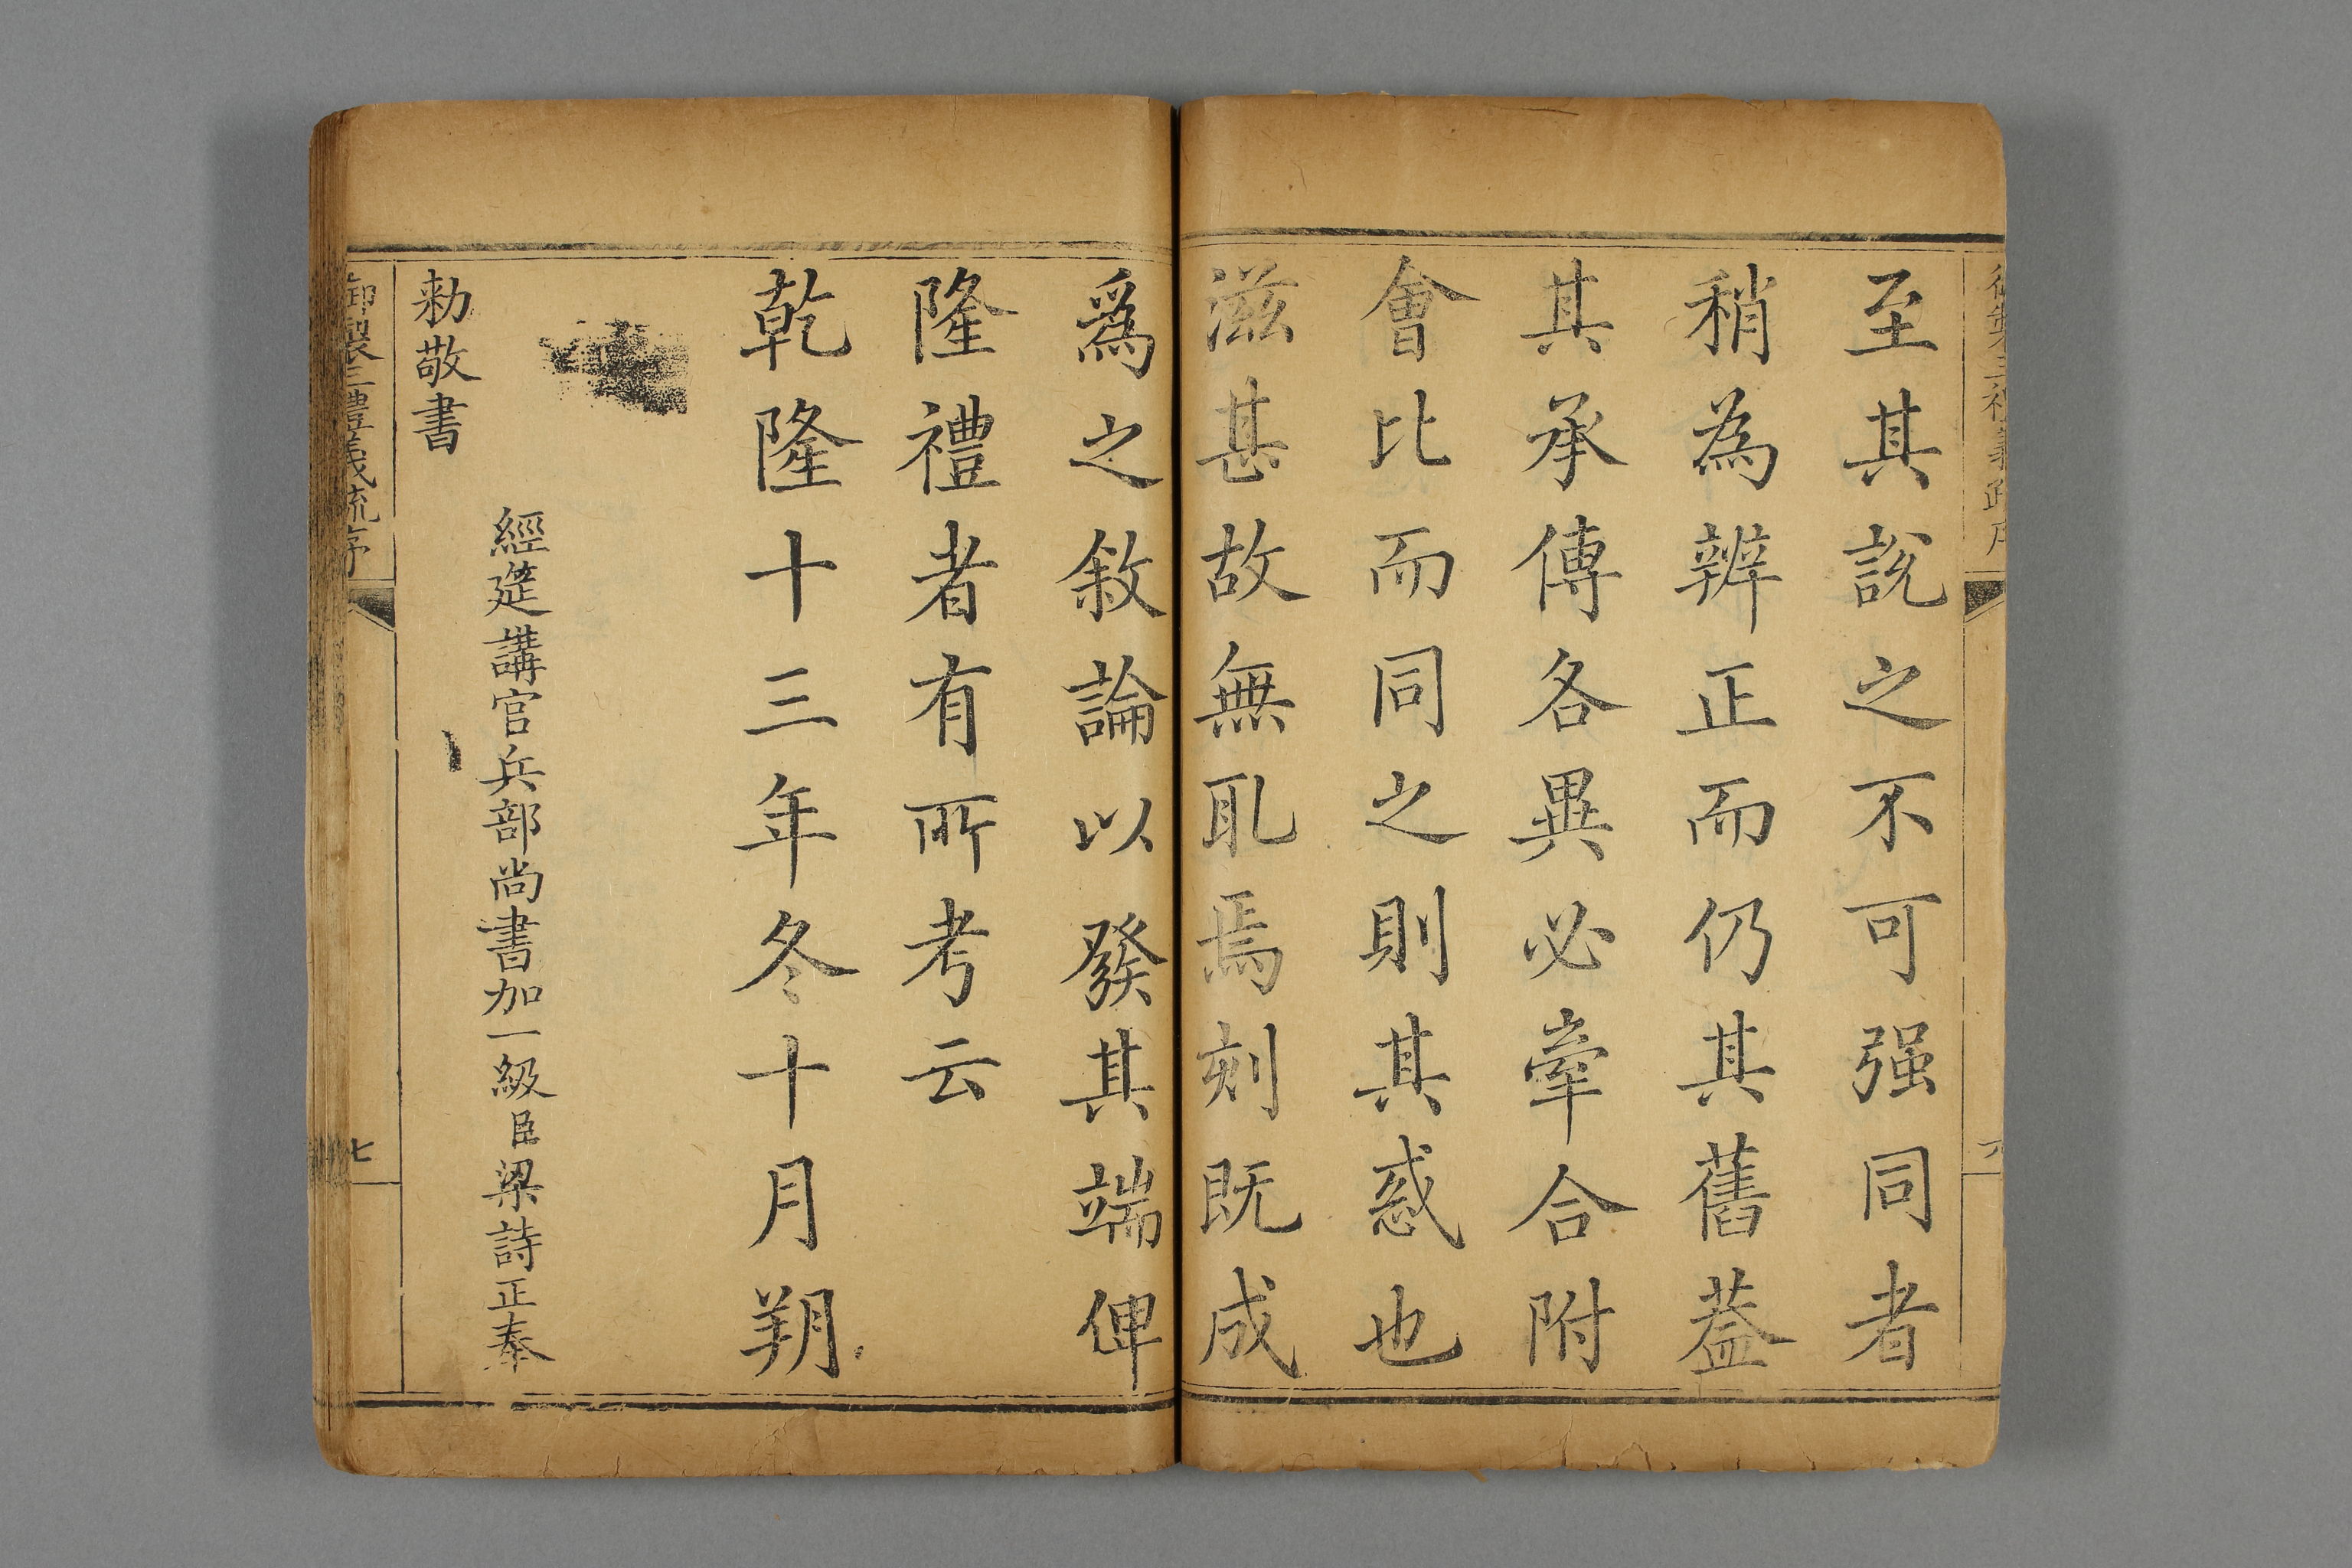 至其說之不可强同者
稍為辨正而仍其舊葢
其承傳各異必牽合附
會比而同之則其惑也
滋甚故無取焉刻既成
爲之敘論以發其端俾
隆禮者有所考云
乾隆十三年冬十月朔
經筵講官兵部尚書加一級臣梁詩正奉
勅敬書
御製三禮義疏序
七